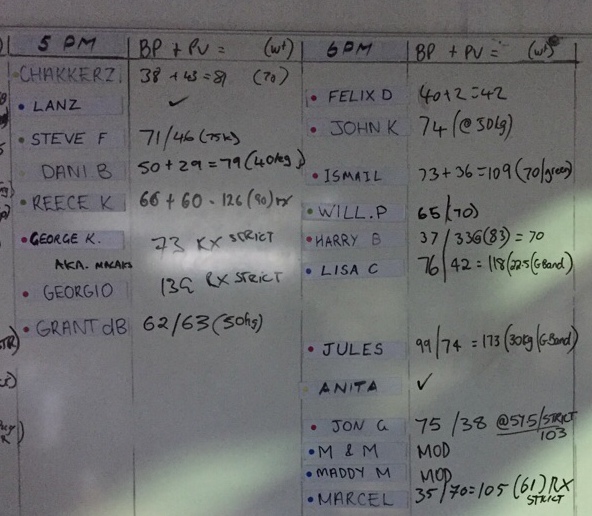 5 PM BP + PV = (wt)
CHAKKERZ. 38 + 43 = 81 (70)
LANZ ✓
STEVE F 71/46 (75K)
DANI B 50 + 29 = 79 (40kg)
REECE K 66 + 60 = 126 (90) rx
GEORGE K. 73 RX STRICT
AKA.
GEORGIO 139 RX STRICT
GRANT dB 62/63 (50kg)
6PM BP + PV = (wt)
FELIX D 40+2=42
JOHN K 74 (@30kg)
ISMAIL 73+36=109 (70/green)
WILL.P 65 (70)
HARRY B 37/33G(83) = 70
LISA C 76/42 = 118(22.5(GBand)
JULES 99/74 = 173(30kg/GBand)
ANITA ✓
JON G 75/38 @57.5/STRICT
103
M & M MOD
MADDY M MOD
MARCEL 35/70=105 (61) RX
STRICT